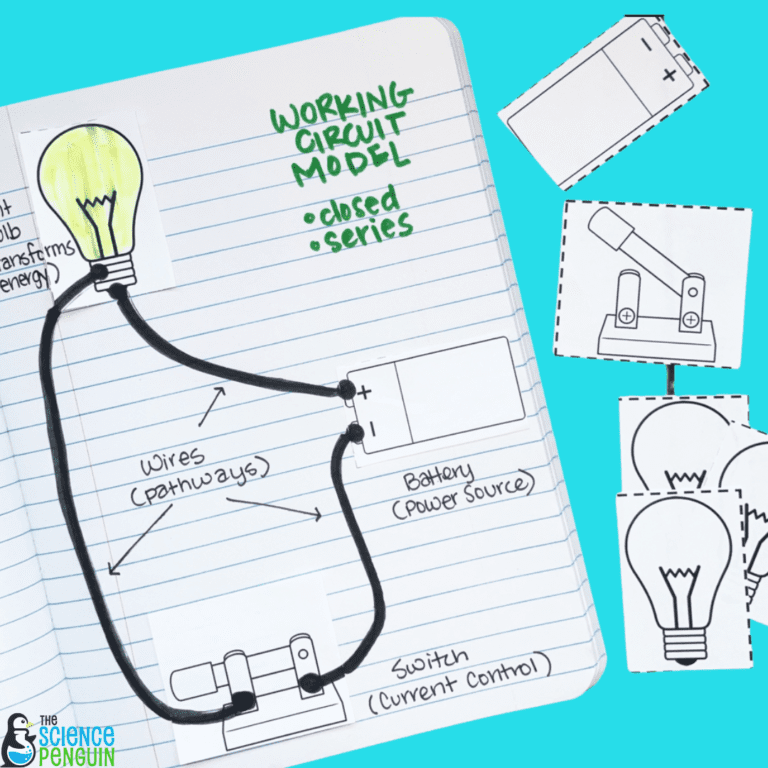 WORKING
CIRCUIT
MODEL
• closed
• series
energy)
+
-
Wires
(pathways)
Battery
(Power Source)
Switch
(Current Control)
- +
THE
SCIENCE
PENGUIN